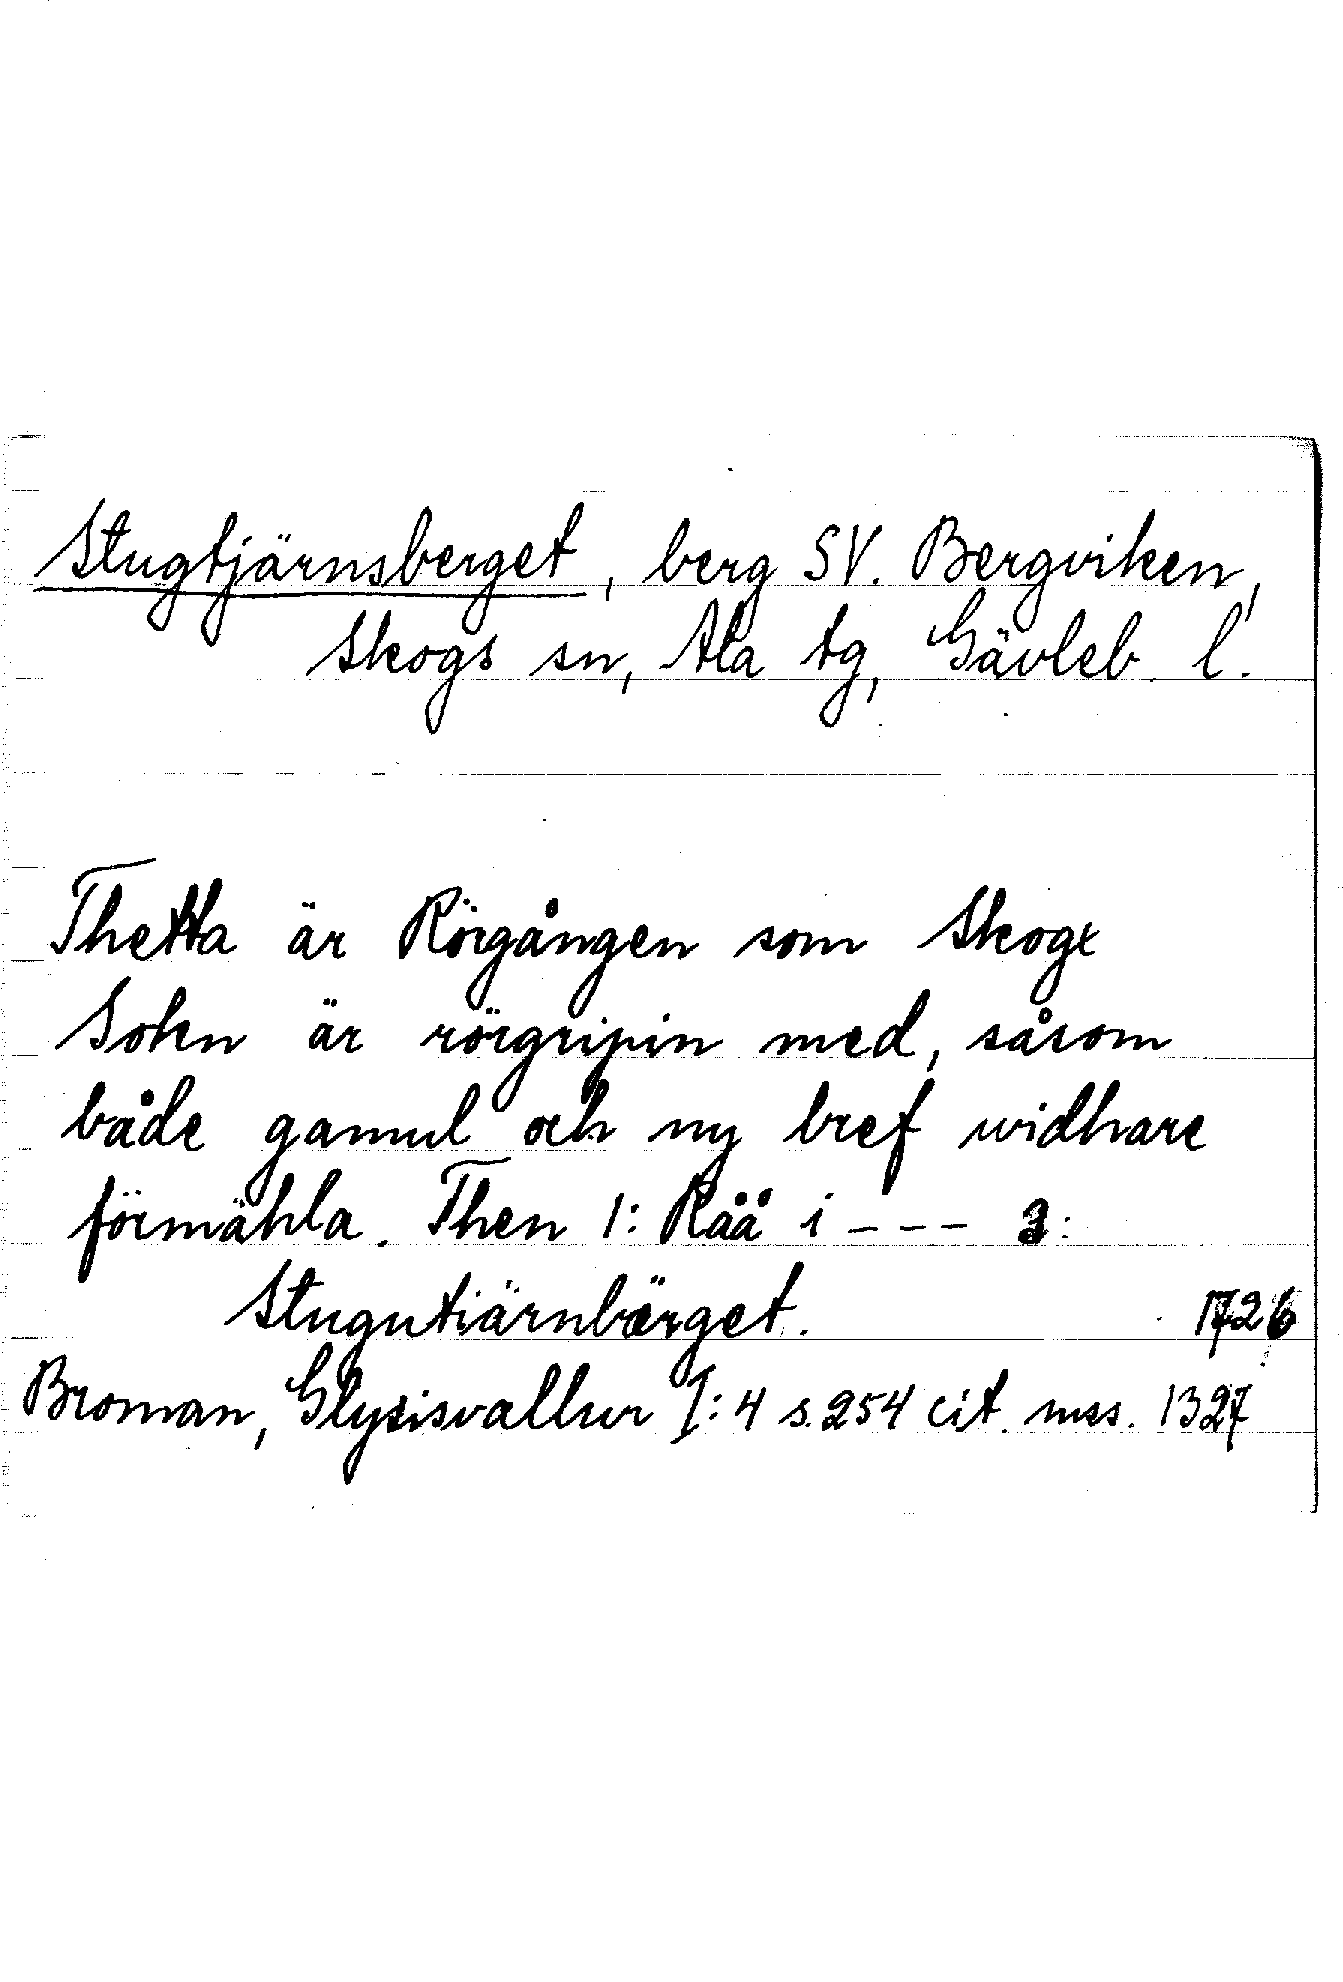 Stugtjärnsberget, berg SV. Bergviken,
Skogs sn, Ala tg, Gävleb. l.
Thetta är Rörgången som Skogx
Sokn är rörgripin med, såsom
både gamul och ny bref widhare
förmähla. Then 1: Råå i - - - 3:
Stugutiärnbärget. 1726
Broman, Glysisvallur I: 4 s. 254 cit. mss. 1327